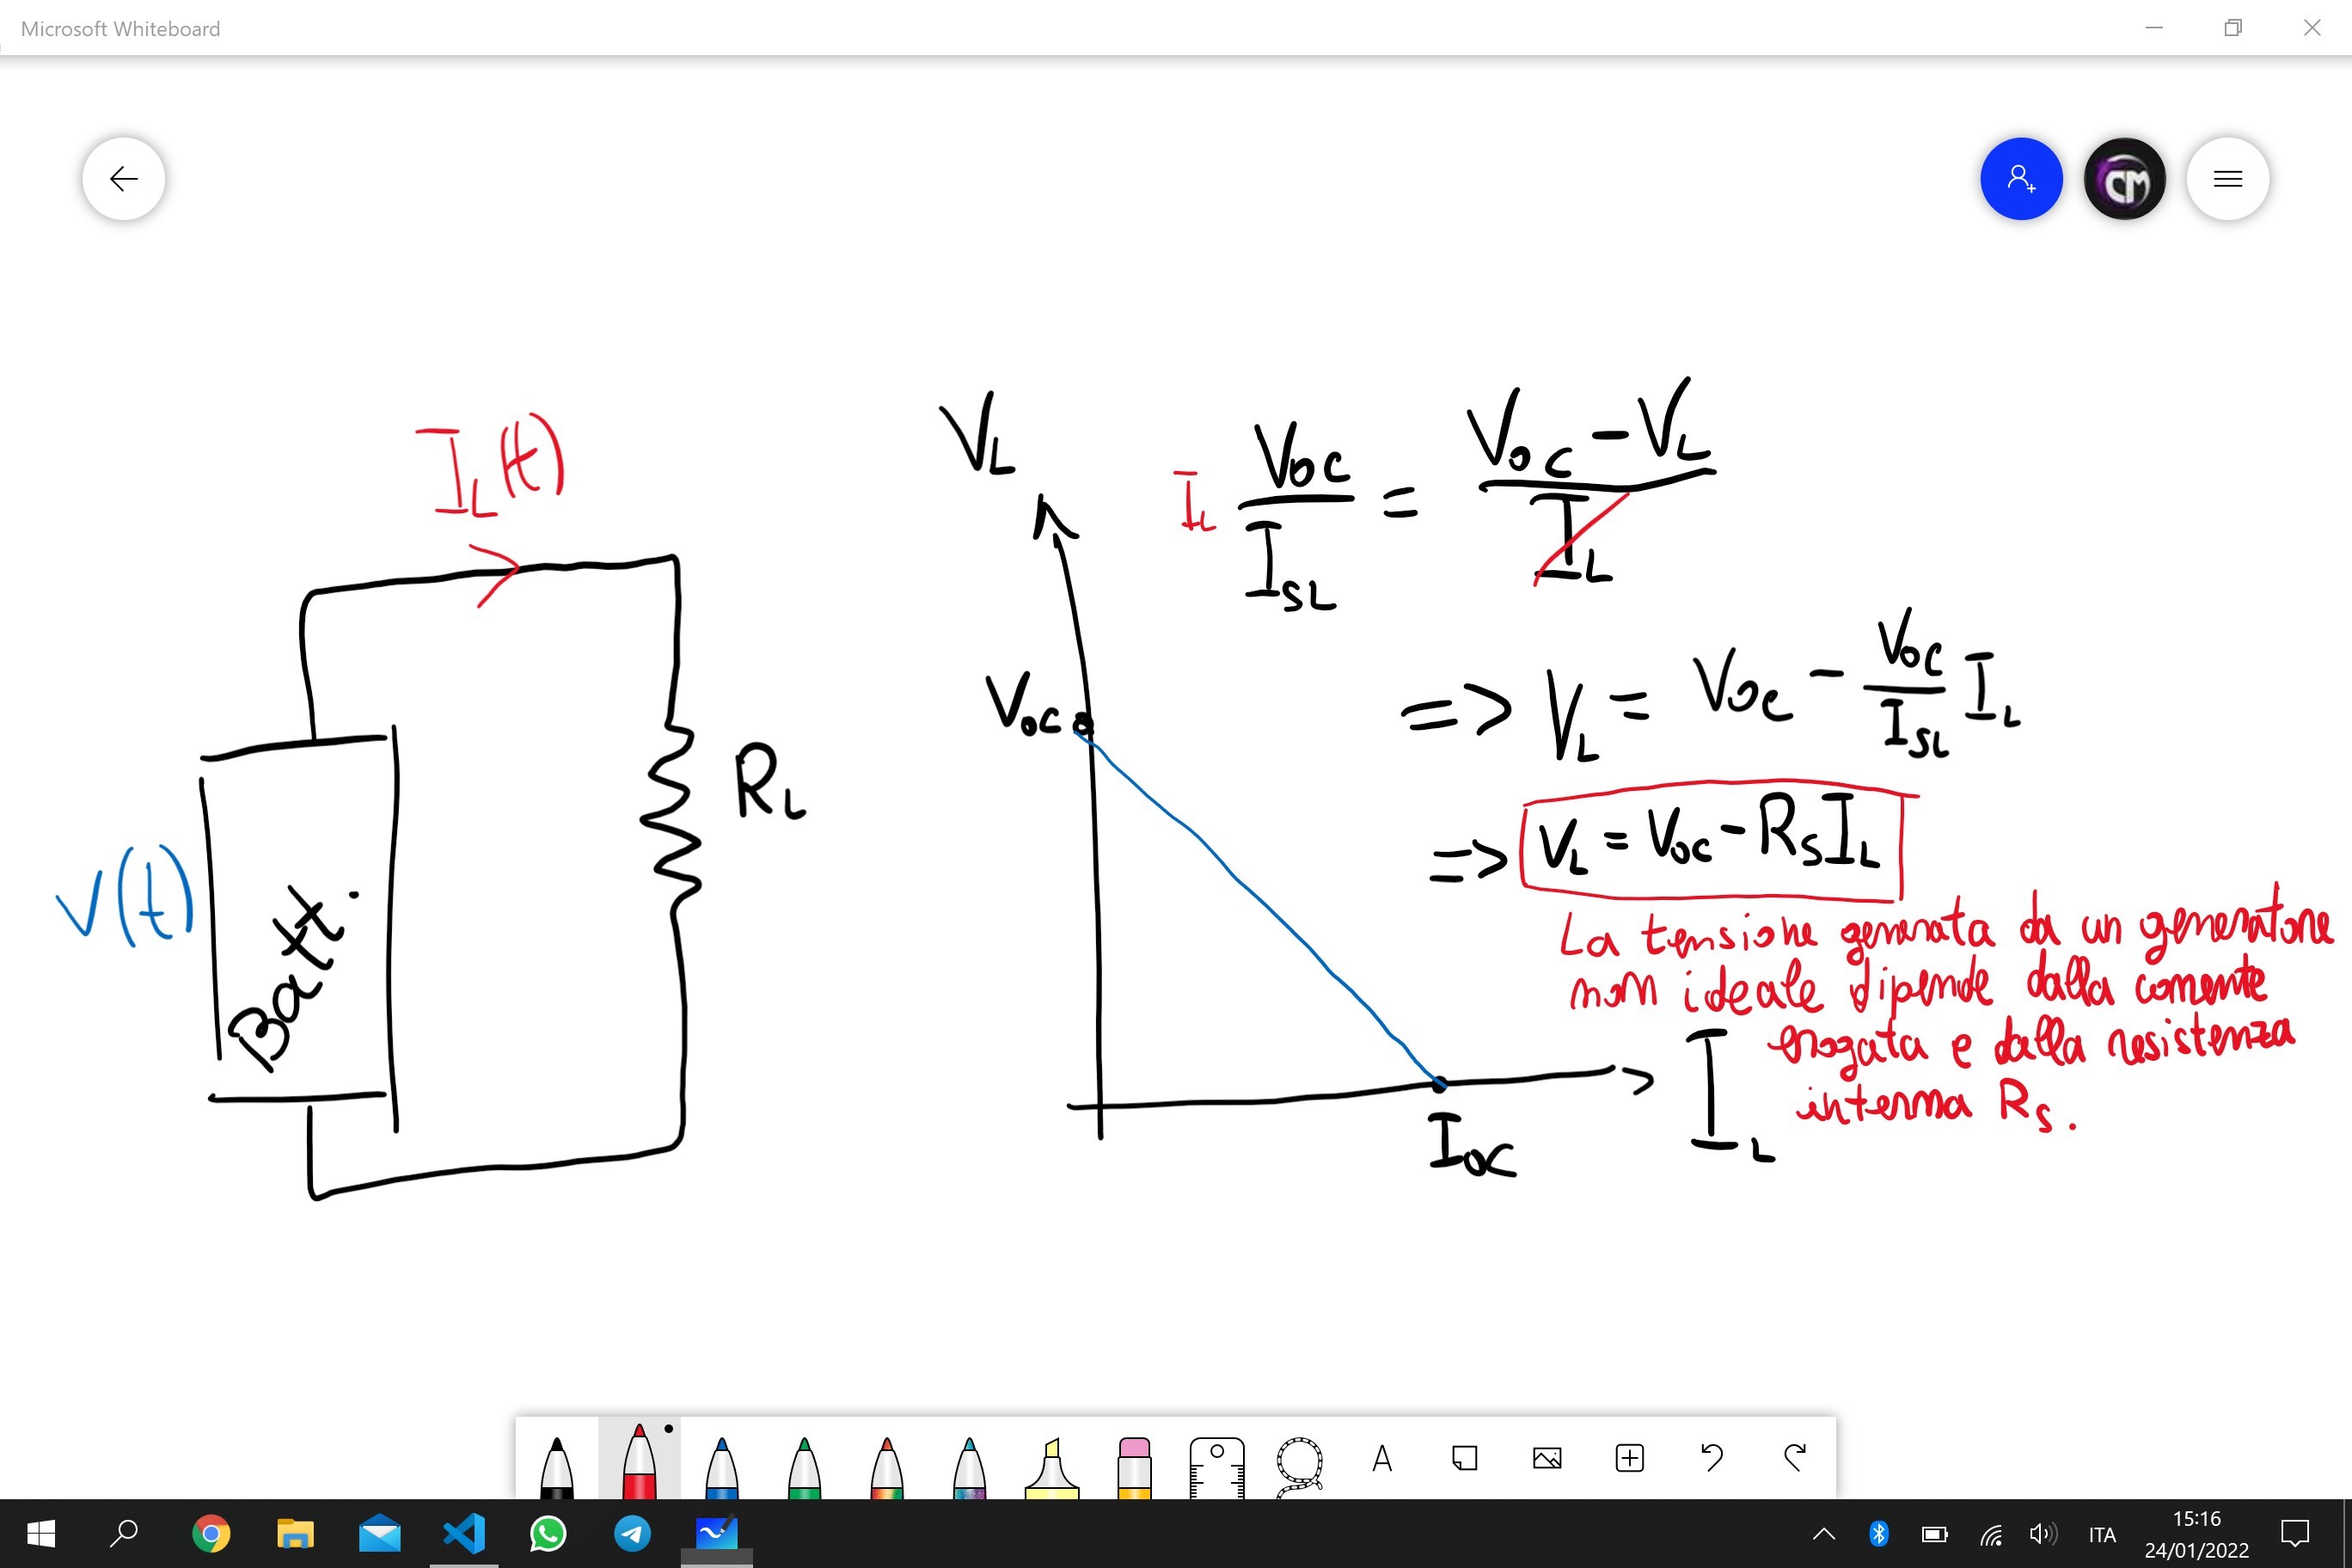 Microsoft Whiteboard
CM
I_L(t)
V_L
I_L V_OC/I_SL = (V_OC - V_L)/I_L
V_OC
=> V_L = V_OC - V_OC/I_SL I_L
R_L
=> V_L = V_OC - R_S I_L
V(t)
Batt.
La tensione generata da un generatore
non ideale dipende dalla corrente
erogata e dalla resistenza
interna R_S.
I_OC
I_L
A
ITA
15:16
24/01/2022